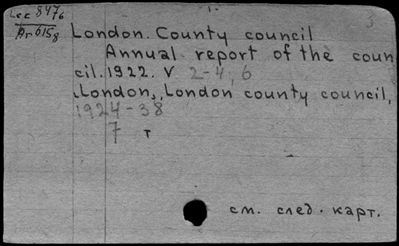 Lec 847/76
Pr 615/8
3
London. County council
Annual report of the coun
cil. 1922. V 2-4, 6
London, London county council,
1924-38
7 т
см. след. карт.